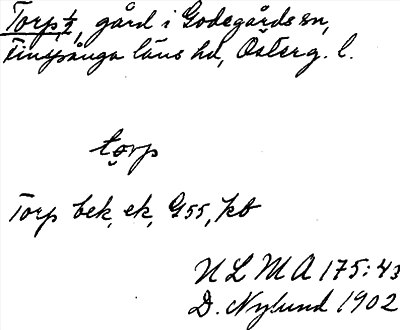 Torp, 1/2, gård i Godegårds sn,
Finspånga läns hd, Österg. l.
torp
Torp bek, ek, G55, kb
N L M A 175:43
D. Nylund 1902